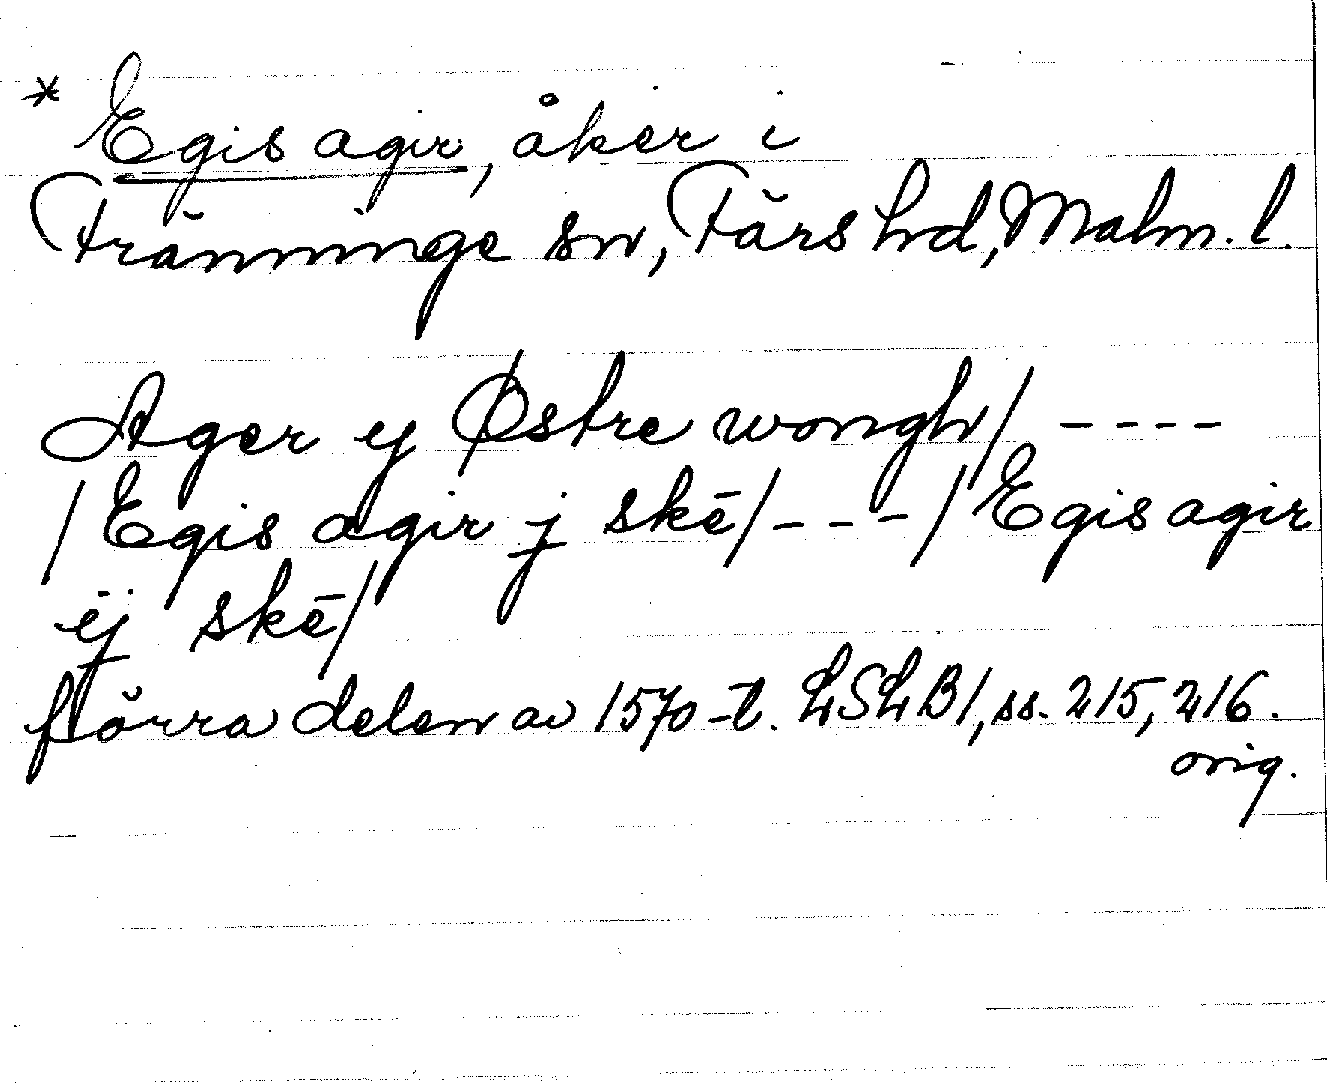 * Egis agir, åker i
Fränninge sn, Färs hd, Malm. l.
Ager ÿ Østre wongh/ ----
/Egis agir j skē/---/Egis agir
ÿ skē/
förra delen av 1570-t. LSLB1, ss. 215, 216.
orig.